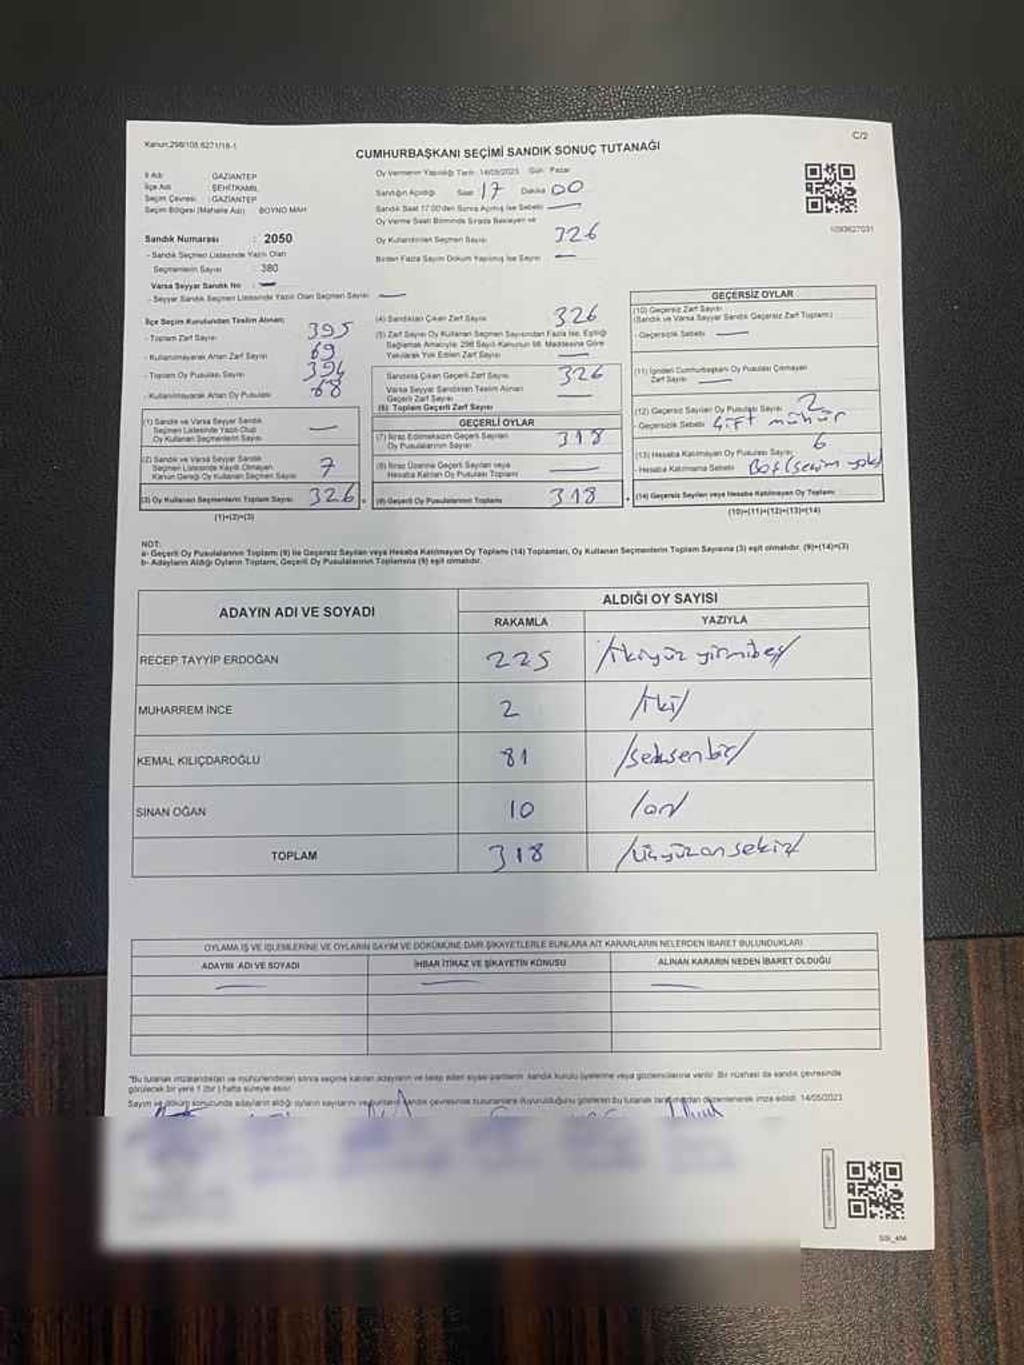 Kanun:298/105,6271/18-1
C/2
CUMHURBAŞKANI SEÇİMİ SANDIK SONUÇ TUTANAĞI
İl Adı GAZİANTEP
İlçe Adı ŞEHİTKAMİL
Seçim Çevresi : GAZİANTEP
Seçim Bölgesi (Mahalle Adı) BOYNO MAH
Sandık Numarası : 2050
- Sandık Seçmen Listesinde Yazılı Olan
Seçmenlerin Sayısı : 380
Varsa Seyyar Sandık No : —
- Seyyar Sandık Seçmen Listesinde Yazılı Olan Seçmen Sayısı —
Oy Vermenin Yapıldığı Tarih: 14/05/2023 Gün: Pazar
Sandığın Açıldığı Saat 17 Dakika 00
Sandık Saat 17:00'den Sonra Açılmış İse Sebebi —
Oy Verme Saati Bitiminde Sırada Bekleyen ve
Oy Kullandırılan Seçmen Sayısı 326
Birden Fazla Sayım Döküm Yapılmış İse Sayısı —
1093627031
İlçe Seçim Kurulundan Teslim Alınan;
- Toplam Zarf Sayısı 395
- Kullanılmayarak Artan Zarf Sayısı 69
- Toplam Oy Pusulası Sayısı 394
- Kullanılmayarak Artan Oy Pusulası 68
(1) Sandık ve Varsa Seyyar Sandık
Seçmen Listesinde Yazılı Olup
Oy Kullanan Seçmenlerin Sayısı —
(2) Sandık ve Varsa Seyyar Sandık
Seçmen Listesinde Kayıtlı Olmayan
Kanun Gereği Oy Kullanan Seçmen Sayısı 7
(3) Oy Kullanan Seçmenlerin Toplam Sayısı 326 =
(1)+(2)=(3)
(4) Sandıktan Çıkan Zarf Sayısı 326
(5) Zarf Sayısı Oy Kullanan Seçmen Sayısından Fazla İse, Eşitliği
Sağlamak Amacıyla; 298 Sayılı Kanunun 98. Maddesine Göre
Yakılarak Yok Edilen Zarf Sayısı —
Sandıkta Çıkan Geçerli Zarf Sayısı 326
Varsa Seyyar Sandıktan Teslim Alınan
Geçerli Zarf Sayısı —
(6) Toplam Geçerli Zarf Sayısı
GEÇERLİ OYLAR
(7) İtiraz Edilmeksizin Geçerli Sayılan
Oy Pusulalarının Sayısı 318
(8) İtiraz Üzerine Geçerli Sayılan veya
Hesaba Katılan Oy Pusulası Toplamı —
(9) Geçerli Oy Pusulalarının Toplamı 318 +
GEÇERSİZ OYLAR
(10) Geçersiz Zarf Sayısı
(Sandık ve Varsa Seyyar Sandık Geçersiz Zarf Toplamı)
- Geçersizlik Sebebi —
(11) İçinden Cumhurbaşkanı Oy Pusulası Çıkmayan
Zarf Sayısı —
(12) Geçersiz Sayılan Oy Pusulası Sayısı 2
- Geçersizlik Sebebi Çift mühür
(13) Hesaba Katılmayan Oy Pusulası Sayısı 6
- Hesaba Katılmama Sebebi Boş (seçim yok)
(14) Geçersiz Sayılan veya Hesaba Katılmayan Oy Toplamı
(10)+(11)+(12)+(13)=(14)
NOT:
a- Geçerli Oy Pusulalarının Toplamı (9) ile Geçersiz Sayılan veya Hesaba Katılmayan Oy Toplamı (14) Toplamları, Oy Kullanan Seçmenlerin Toplam Sayısına (3) eşit olmalıdır. (9)+(14)=(3)
b- Adayların Aldığı Oyların Toplamı, Geçerli Oy Pusulalarının Toplamına (9) eşit olmalıdır.
ADAYIN ADI VE SOYADI
ALDIĞI OY SAYISI
RAKAMLA YAZIYLA
RECEP TAYYİP ERDOĞAN 225 /ikiyüz yirmibeş/
MUHARREM İNCE 2 /iki/
KEMAL KILIÇDAROĞLU 81 /seksenbir/
SİNAN OĞAN 10 /on/
TOPLAM 318 /üçyüzonsekiz/
OYLAMA İŞ VE İŞLEMLERİNE VE OYLARIN SAYIM VE DÖKÜMÜNE DAİR ŞİKAYETLERLE BUNLARA AİT KARARLARIN NELERDEN İBARET BULUNDUKLARI
ADAYIN ADI VE SOYADI İHBAR İTİRAZ VE ŞİKAYETİN KONUSU ALINAN KARARIN NEDEN İBARET OLDUĞU
— — —
"Bu tutanak imzalandıktan ve mühürlendikten sonra seçime katılan adayların ve talep eden siyasi partilerin sandık kurulu üyelerine veya gözlemcilerine verilir. Bir nüshası da sandık çevresinde
görülecek bir yere 1 (bir) hafta süreyle asılır.
Sayım ve döküm sonucunda adayların aldığı oyların sayılarını ve bunların sandık çevresinde bulunanlara duyurulduğunu gösteren bu tutanak tarafımızdan düzenlenerek imza edildi. 14/05/2023